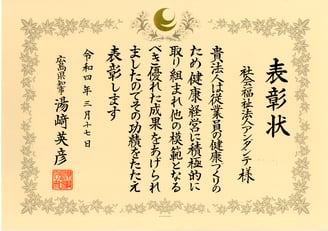 表彰状
社会福祉法人アンダンテ様
貴法人は従業員の健康づくりの
ため健康経営に積極的に
取り組まれ他の模範となる
べき優れた成果をあげられ
ましたのでその功績をたたえ
表彰します
令和四年三月十七日
広島県知事 湯﨑英彦